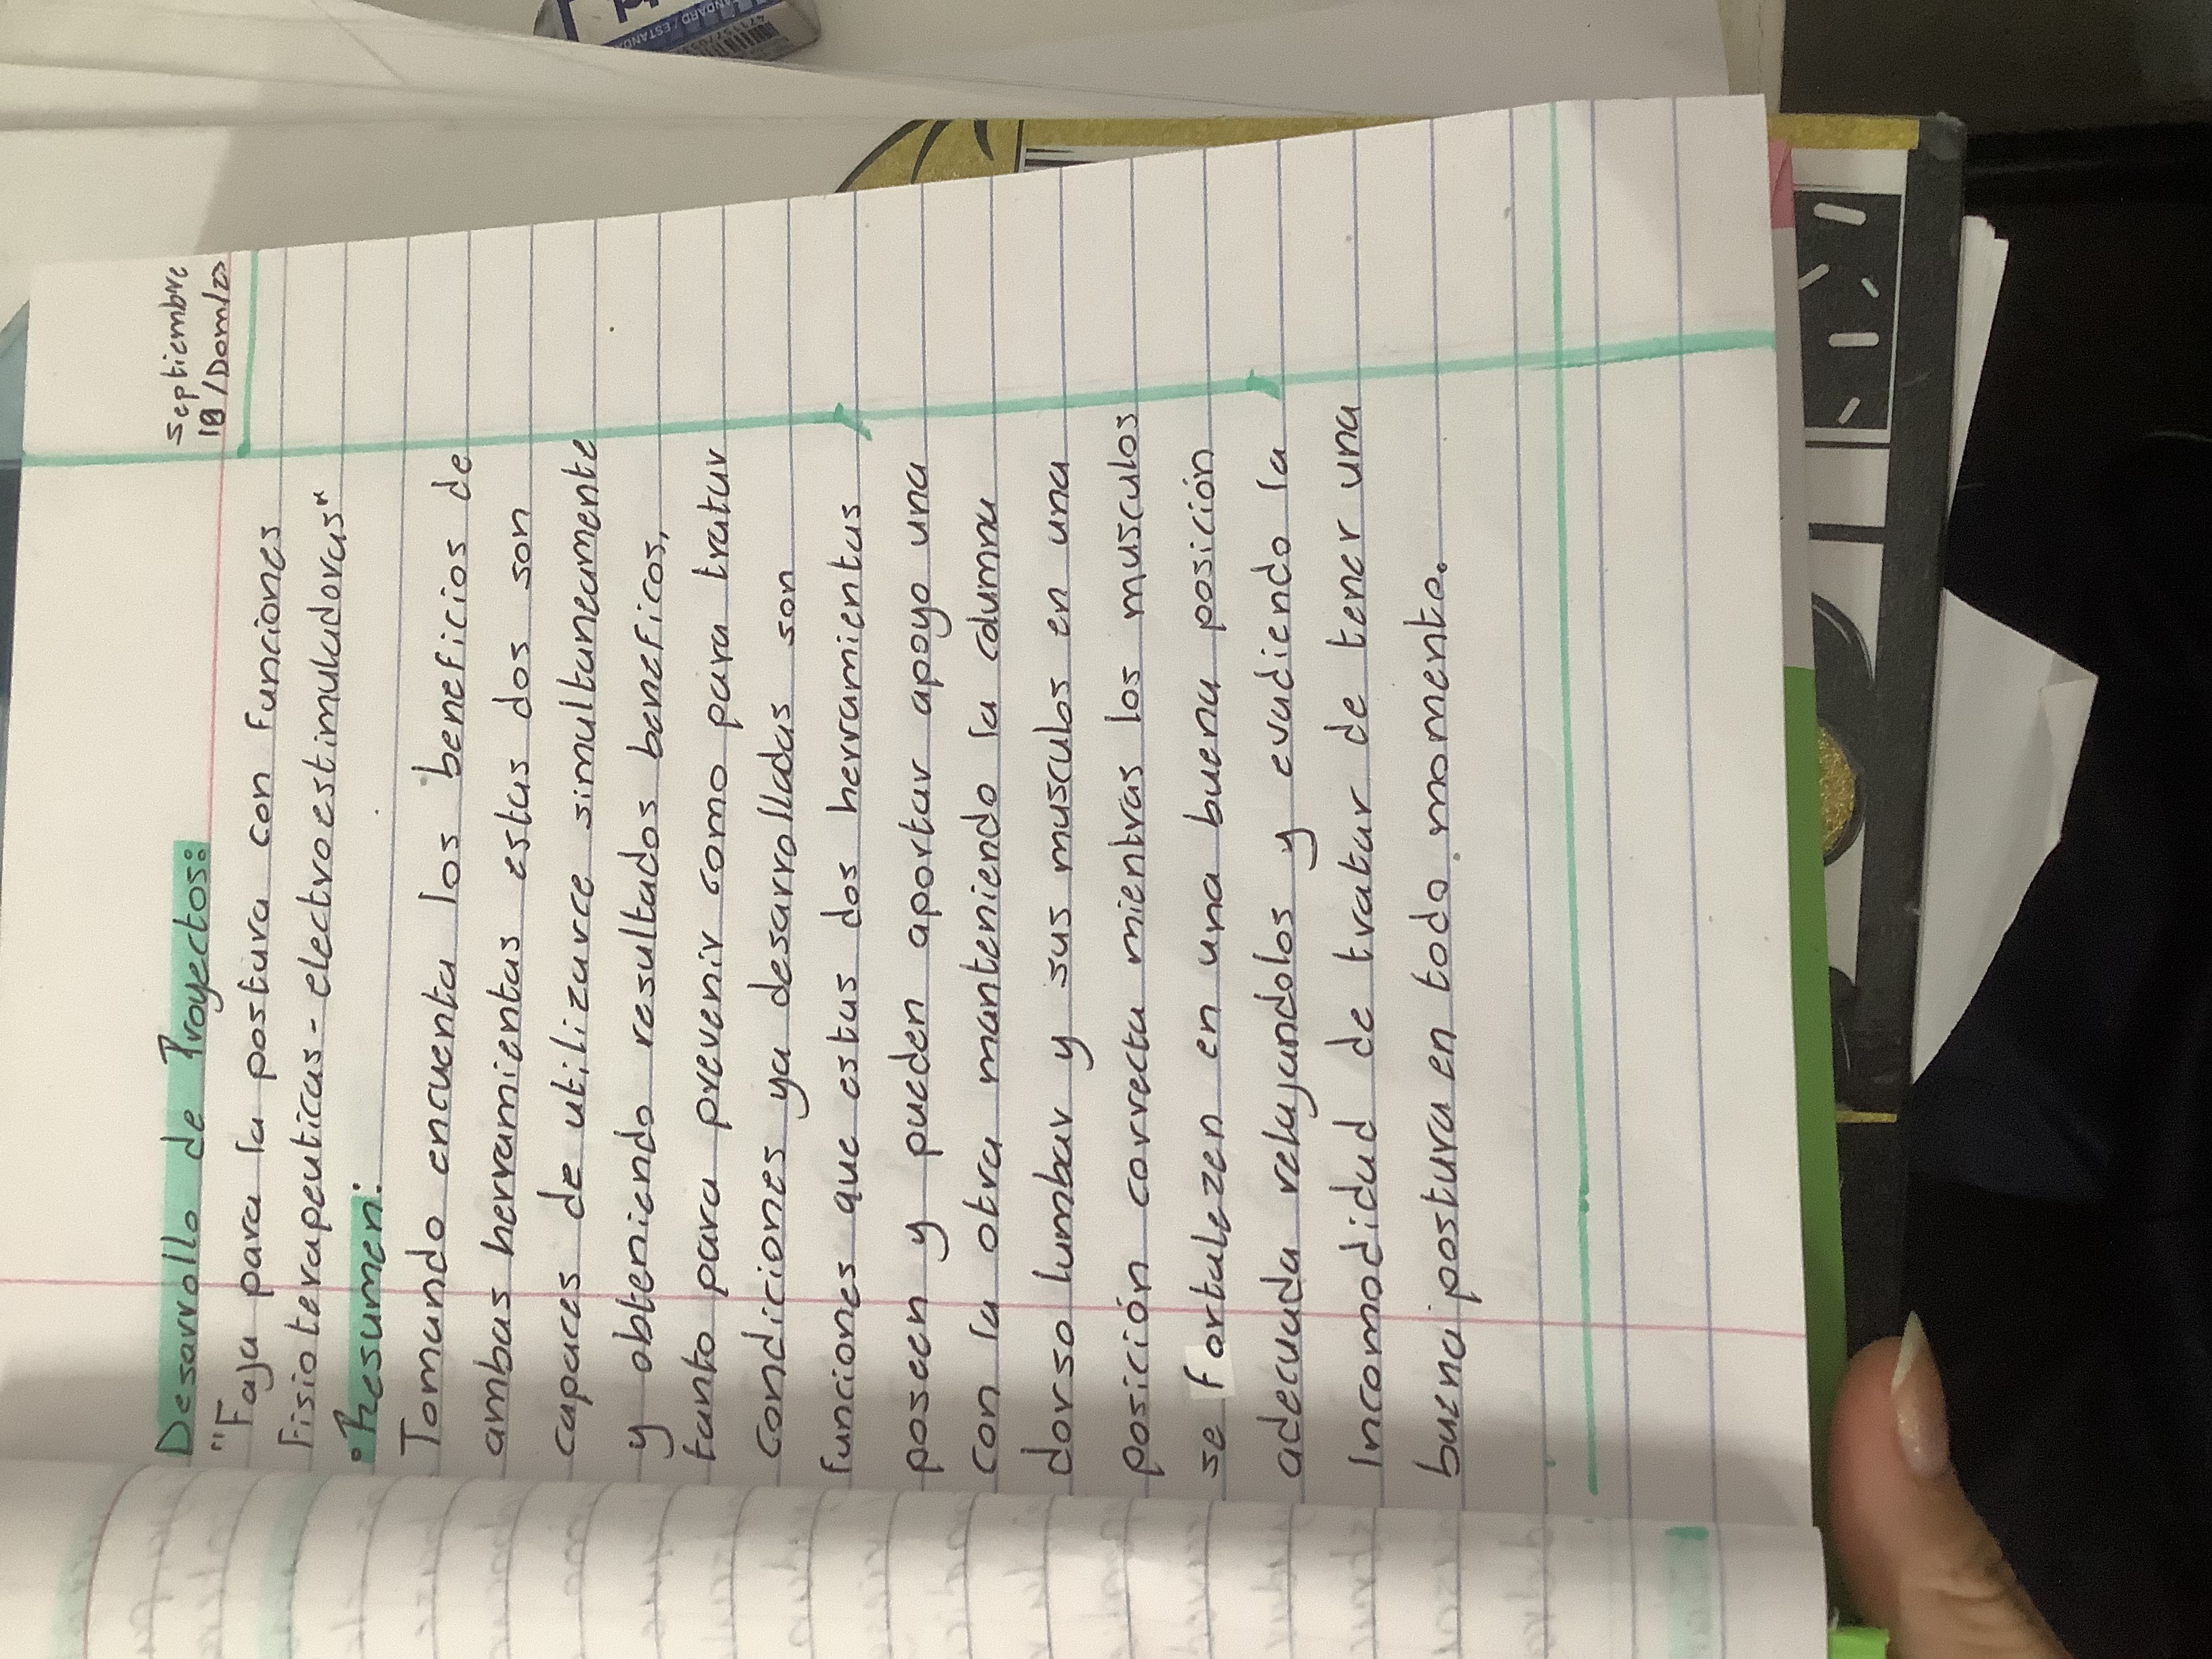 Septiembre
10/Dom/23
Desarrollo de Proyectos:
"Faja para la postura con funciones
fisioterapeuticas-electroestimuladoras"
•Resumen:
Tomando encuenta los beneficios de
ambas herramientas estas dos son
capaces de utilizarce simultaneamente
y obteniendo resultados beneficos,
tanto para prevenir como para tratar
condiciones ya desarrolladas son
funciones que estas dos herramientas
poseen y pueden aportar apoyo una
con la otra manteniendo la columna
dorso lumbar y sus musculos en una
posición correcta mientras los musculos
se fortalezen en una buena posición
adecuada relajandolos y evadiendo la
Incomodidad de tratar de tener una
buena postura en todo momento.
STANDARD / ESTANDA